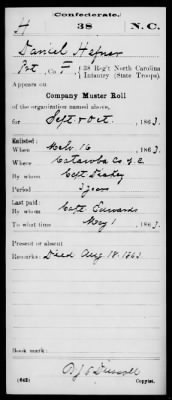 Confederate.
H 38 N.C.
Daniel Hefner
Pvt, Co. F, 38 Reg't North Carolina
Infantry (State Troops).
Appears on
Company Muster Roll
of the organization named above,
for Sept & Oct, 1863
Enlisted:
When 16
Where Catawba Co N.C.
By whom Capt
Period 3 years
Last paid:
By whom Capt Edwards
To what time May 1, 1863.
Present or absent
Remarks: Died Aug 18. 1863
Book mark:
(642) Copyist.